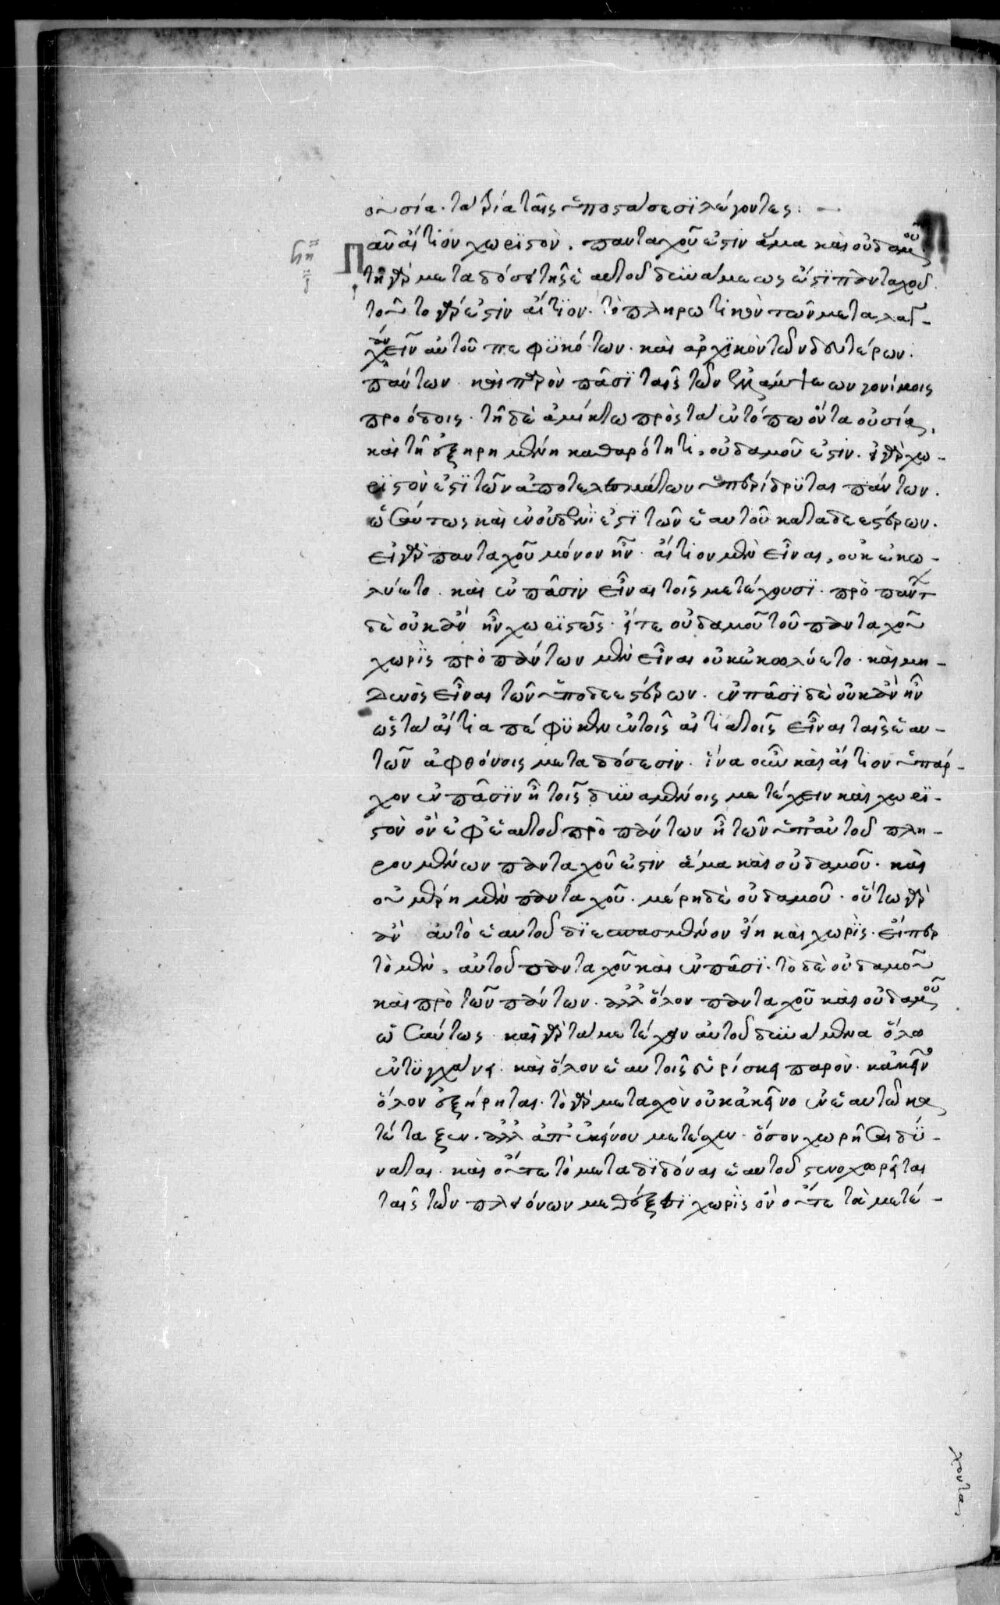 οὐσία. τὰ τρία ταῖς ὑποστάσεσι λέγοντες :
ϟη
Πᾶν αἴτιον χωριστὸν, πανταχοῦ ἐστιν ἅμα καὶ οὐδαμοῦ
τῇ γὰρ μεταδόσει τῆς ἑαυτοῦ δυνάμεως ἐστὶ πανταχοῦ.
τοῦτο γάρ ἐστιν αἴτιον. τὸ πληρωτικὸν τῶν μεταλαγ-
χάνειν αὐτοῦ πεφυκότων. καὶ ἀρχικὸν τῶν δευτέρων
πάντων. καὶ παρὸν πᾶσι ταῖς τῶν γονίμοις
προόδοις. τῇ δὲ ἀμίκτῳ πρὸς τὰ ἐν τόπῳ ὄντα οὐσίᾳ,
καὶ τῇ ἐξῃρημένῃ καθαρότητι, οὐδαμοῦ ἐστιν. εἰ γὰρ χω-
ριστὸν ἐστὶ τῶν ἀποτελεσμάτων ὑπερίδρυται πάντων.
ὡσαύτως καὶ ἐν οὐδενί ἐστι τῶν ἑαυτοῦ καταδεεστέρων.
εἰ γὰρ πανταχοῦ μόνον ἦν. αἴτιον μὲν εἶναι, οὐκ ἐκω-
λύετο. καὶ ἐν πᾶσιν εἶναι τοῖς μετέχουσι. πρὸ πάντων
δὲ οὐκ ἂν ἦν χωριστῶς. εἴτε οὐδαμοῦ τοῦ πανταχοῦ
χωρὶς πρὸ πάντων μὲν εἶναι οὐκ ἐκωλύετο. καὶ μη-
δενὸς εἶναι τῶν ὑποδεεστέρων. ἐν πᾶσι δὲ οὐκ ἂν ἦν
ὡς τὰ αἴτια πέφυκεν ἐν τοῖς αἰτιατοῖς εἶναι ταῖς ἑαυ-
τῶν ἀφθόνοις μεταδόσεσιν. ἵνα οὖν καὶ αἴτιον ὑπάρ-
χον ἐν πᾶσιν ᾖ τοῖς δυναμένοις μετέχειν καὶ χωρι-
στὸν ὂν ἐφ' ἑαυτοῦ πρὸ πάντων ᾖ τῶν ὑπ' αὐτοῦ πλη-
ρουμένων πανταχοῦ ἐστιν ἅμα καὶ οὐδαμοῦ. καὶ
οὐ μέρη μὲν πανταχοῦ. μέρη δὲ οὐδαμοῦ. οὕτω γὰρ
ἂν αὐτὸ ἑαυτοῦ διεσπασμένον εἴη καὶ χωρὶς. εἴπερ
τὸ μὲν, αὐτοῦ πανταχοῦ καὶ ἐν πᾶσι. τὸ δὲ οὐδαμοῦ
καὶ πρὸ τῶν πάντων. ἀλλ' ὅλον πανταχοῦ καὶ οὐδαμοῦ
ὡσαύτως. καὶ γὰρ τὰ μετέχειν αὐτοῦ δυνάμενα ὅλῳ
ἐντυγχάνει. καὶ ὅλον ἑαυτοῖς εὑρίσκει παρὸν. κἀκεῖνο
ὅλον ἐξῄρηται. τὸ γὰρ μετασχὸν οὐκ ἀκεῖνο ἐν ἑαυτῷ κα
τέταξεν. ἀλλ' ἀπ' ἐκείνου μετέχειν. ὅσον χωρῆσαι δύ-
ναται. καὶ οὔτε τῷ μεταδιδόναι ἑαυτοῦ στενοχωρεῖται
ταῖς τῶν πλειόνων μεθέξεσι χωρὶς ὂν οὔτε τὰ μετέ-
χοντα